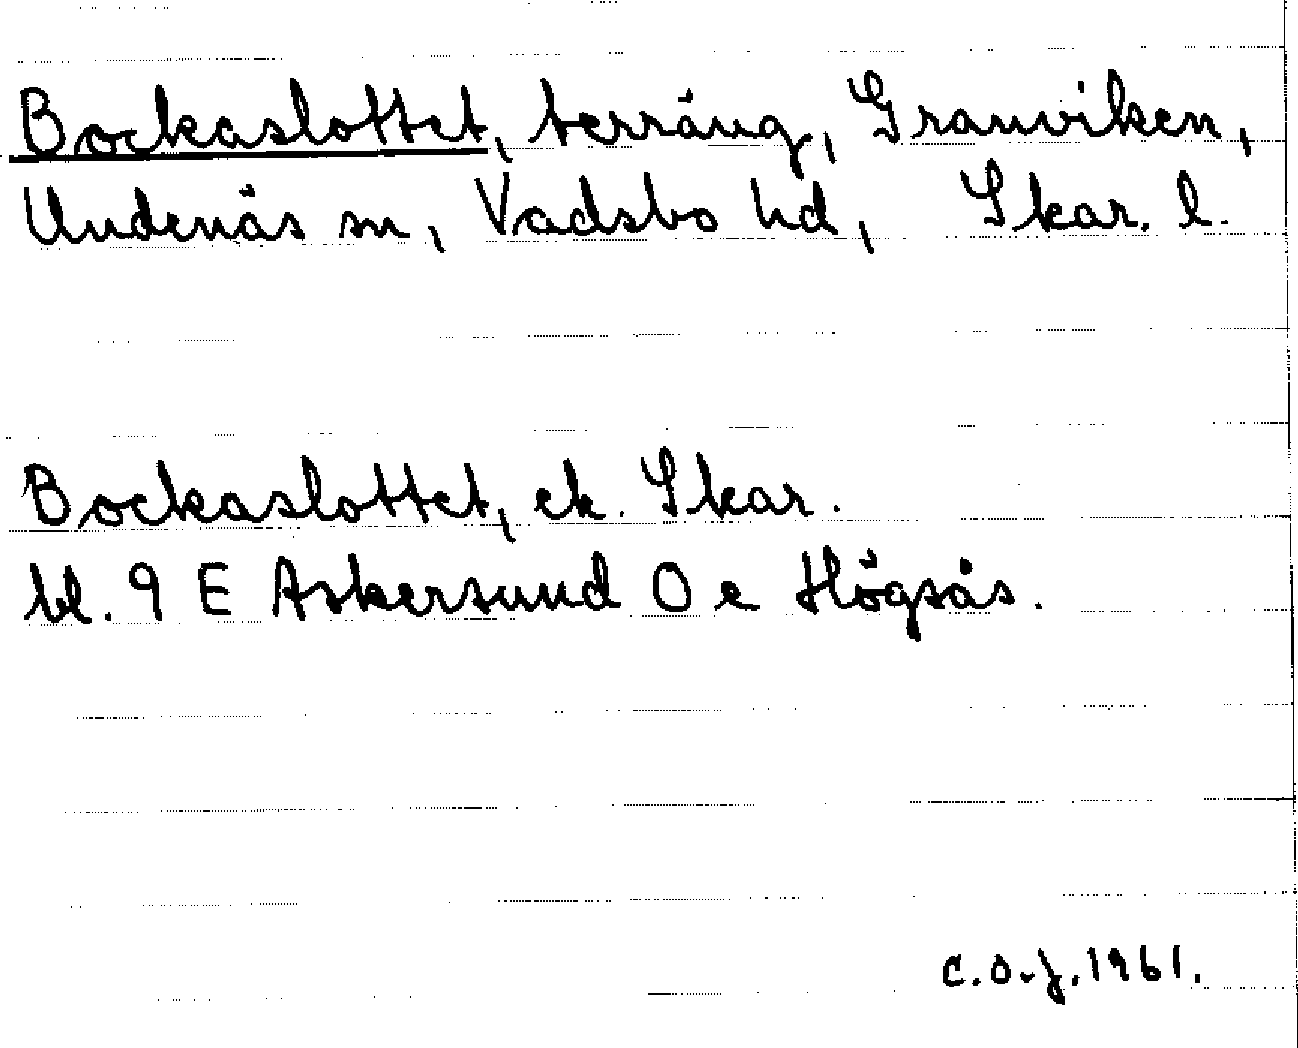 Bockaslottet, terräng, Granviken,
Undenäs sn, Vadsbo hd, Skar. l.
Bockaslottet, ek. Skar.
bl. 9 E Askersund O e Högsås.
C.O.J. 1961.